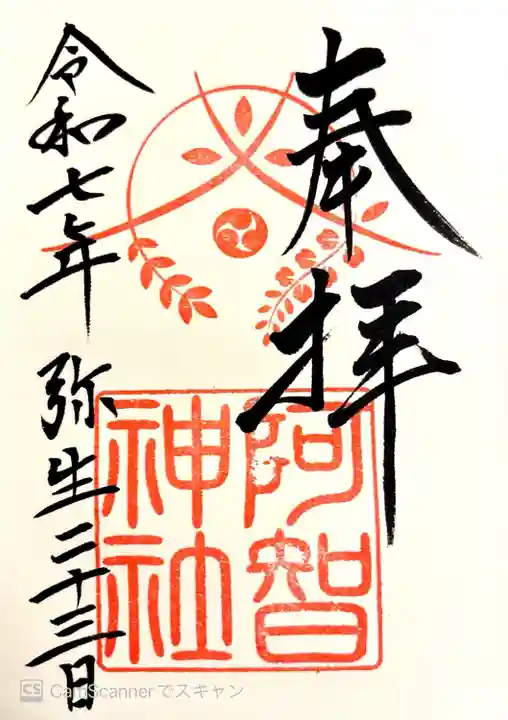 奉拝
阿智
神社
令和七年 弥生二十三日
CS CamScannerでスキャン